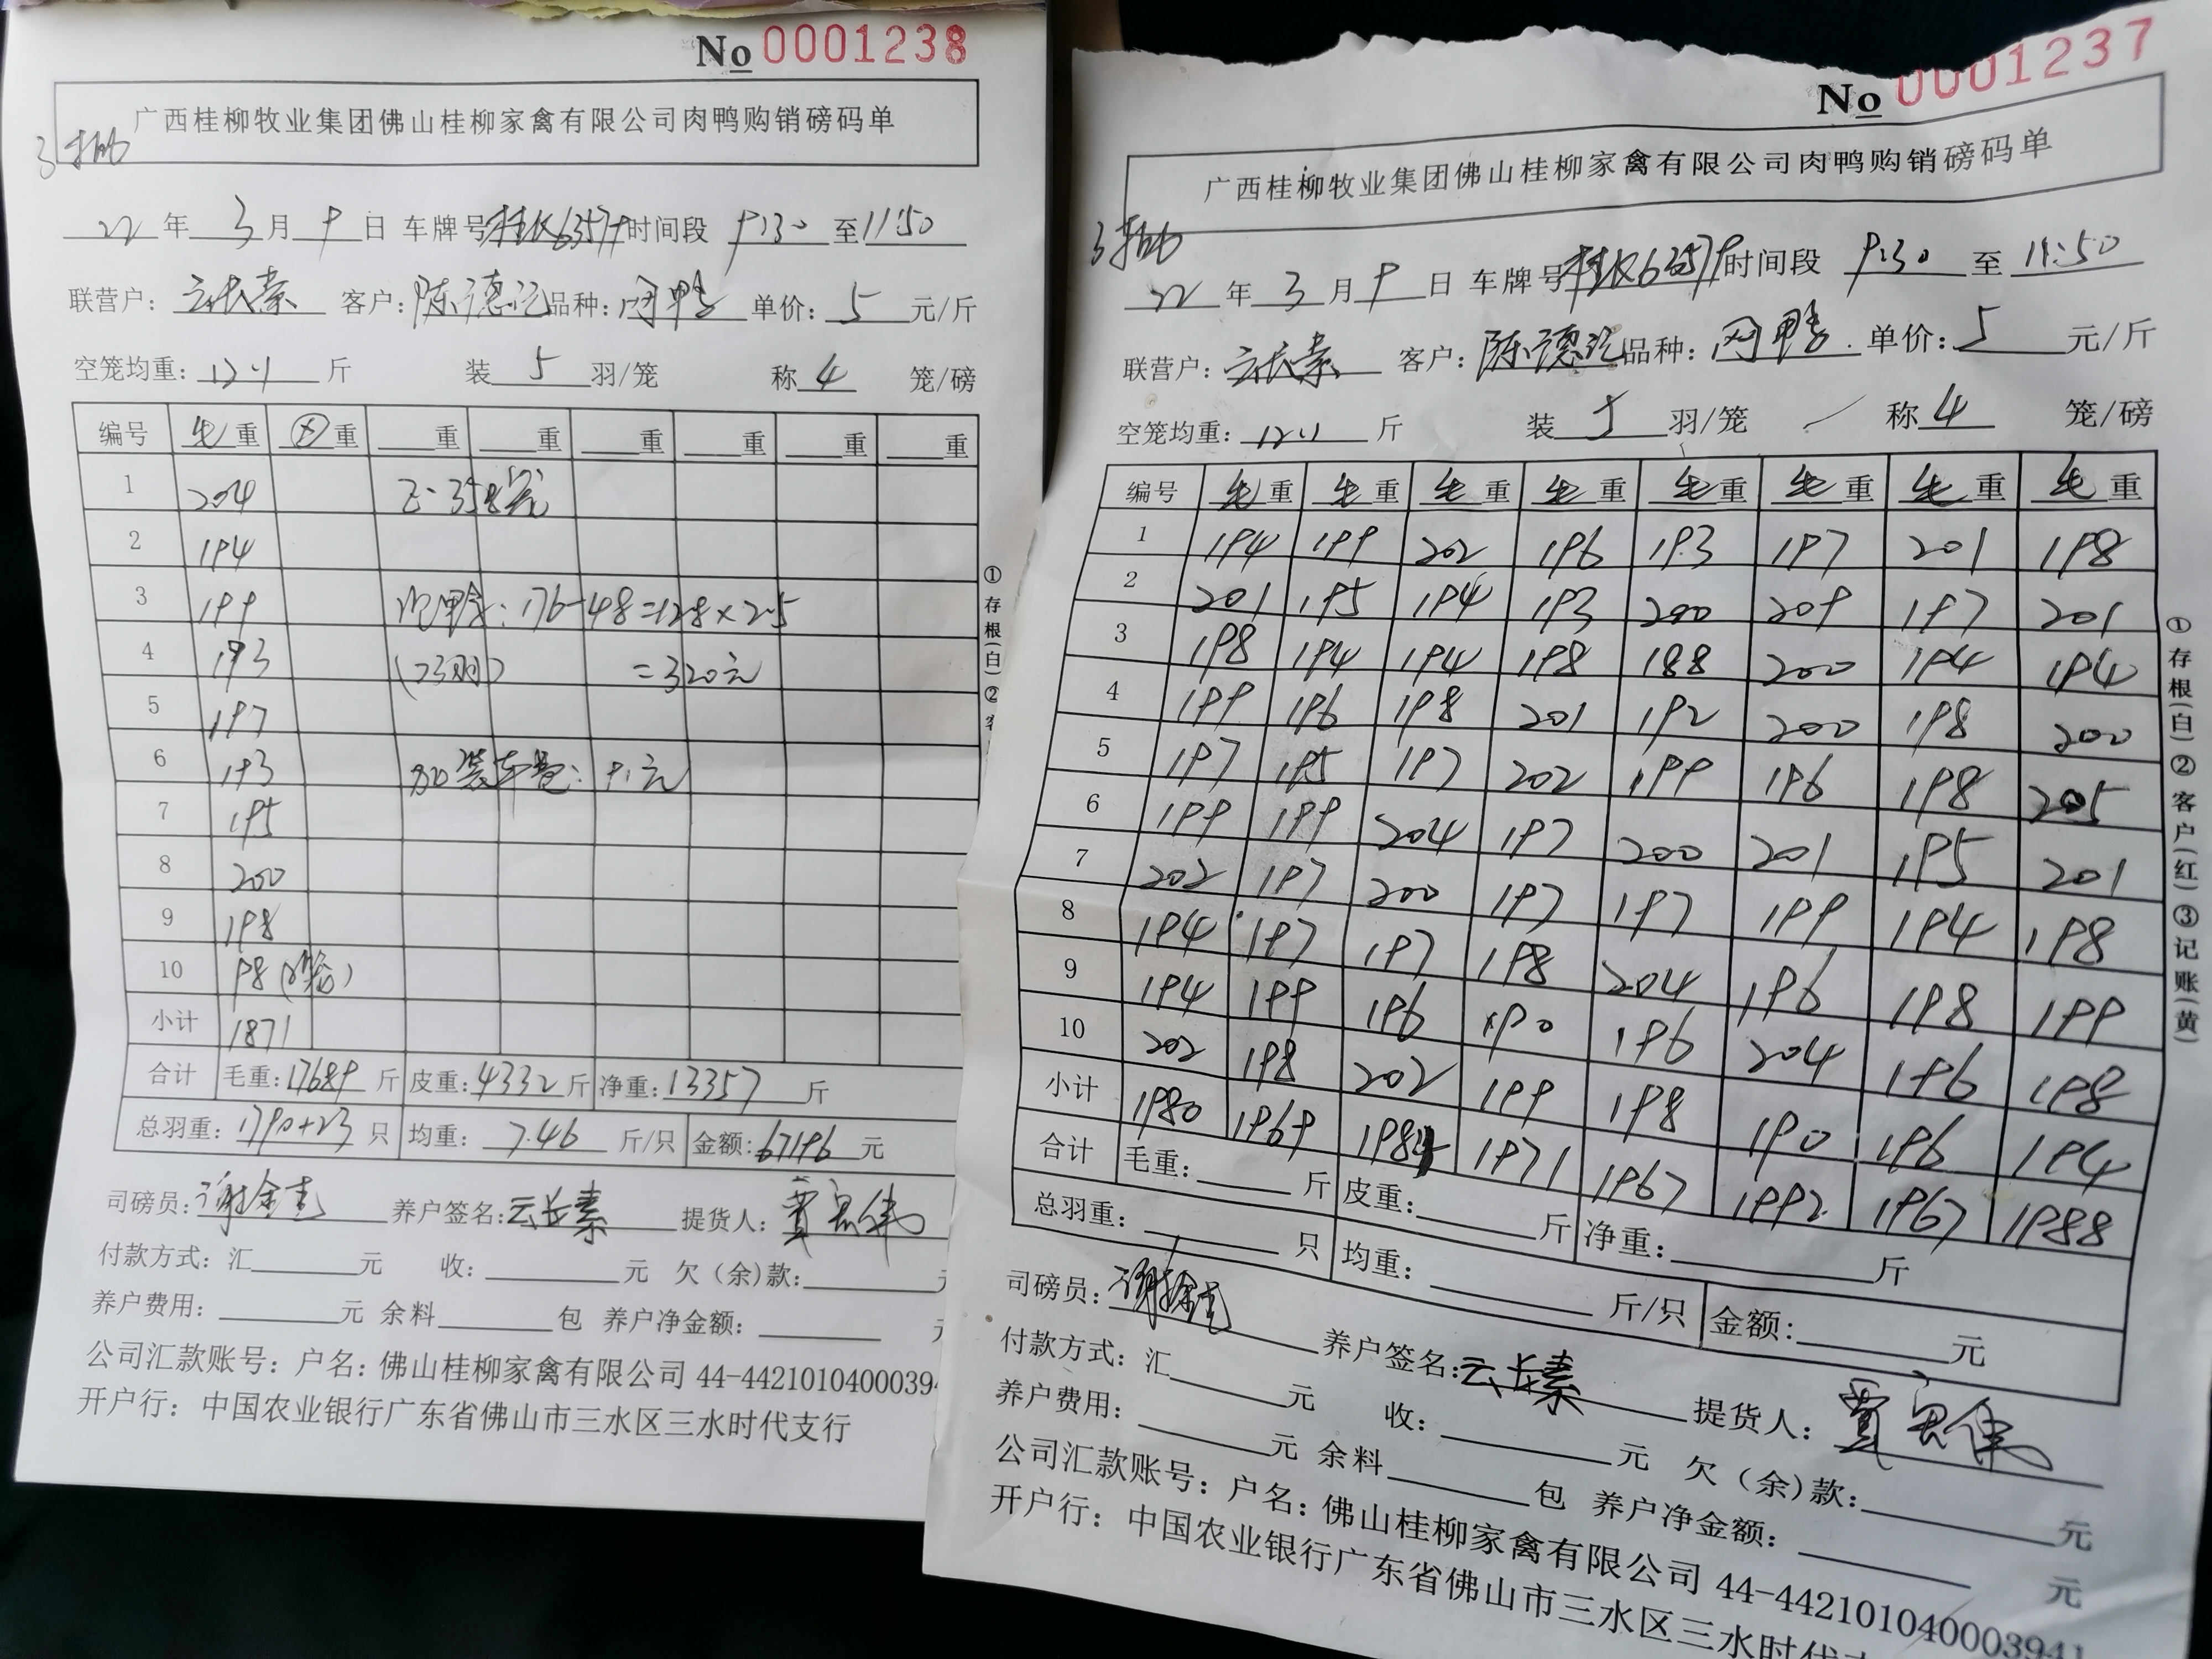 No 0001238
广西桂柳牧业集团佛山桂柳家禽有限公司肉鸭购销磅码单
3
22年 3月 9日 车牌号 6357 时间段 9:30 至 11:50
联营户: 云长素 客户: 陈德 品种: 肉鸭 单价: 5 元/斤
空笼均重: 斤 装 5 羽/笼 称 4 笼/磅
编号 毛重 重 重 重 重 重 重 重
1 204
2 194
3 199 : 176-48=128×2.5
4 193 (23羽) =320元
5 197
6 193 加装车费: 91元
7 195
8 200
9 198
10 98
小计 1871
合计 毛重: 17689 斤 皮重: 4332 斤 净重: 13357 斤
总羽重: 1790+23 只 均重: 7.46 斤/只 金额: 67196 元
司磅员: 谢 养户签名: 云长素 提货人: 伟
付款方式: 汇 元 收: 元 欠(余)款:
养户费用: 元 余料 包 养户净金额:
公司汇款账号: 户名: 佛山桂柳家禽有限公司 44-442101040003941
开户行: 中国农业银行广东省佛山市三水区三水时代支行
①存根(白)②
No 0001237
广西桂柳牧业集团佛山桂柳家禽有限公司肉鸭购销磅码单
3
22年 3月 9日 车牌号 时间段 9:30 至 11:50
联营户: 云长素 客户: 陈德 品种: 肉鸭 单价: 5 元/斤
空笼均重: 斤 装 5 羽/笼 称 4 笼/磅
编号 毛重 毛重 毛重 毛重 毛重 毛重 毛重 毛重
1 194 199 202 196 193 197 201 198
2 201 195 194 193 200 209 197 201
3 198 194 194 198 188 200 194 194
4 199 196 198 201 192 200 198 200
5 197 195 197 202 199 196 198 205
6 199 199 204 197 200 201 195 201
7 202 197 200 197 197 199 194 198
8 194 197 197 198 204 196 198 199
9 194 199 196 190 196 204 196 198
10 202 198 202 199 198 190 196 194
小计 1980 1969 1984 1971 1967 1992 1967 1988
合计 毛重: 斤 皮重: 斤 净重: 斤
总羽重: 只 均重: 斤/只 金额: 元
司磅员: 谢 养户签名: 云长素 提货人: 伟
付款方式: 汇 元 收: 元 欠(余)款: 元
养户费用: 元 余料 包 养户净金额: 元
公司汇款账号: 户名: 佛山桂柳家禽有限公司 44-442101040003941
开户行: 中国农业银行广东省佛山市三水区三水时代
①存根(白)②客户(红)③记账(黄)